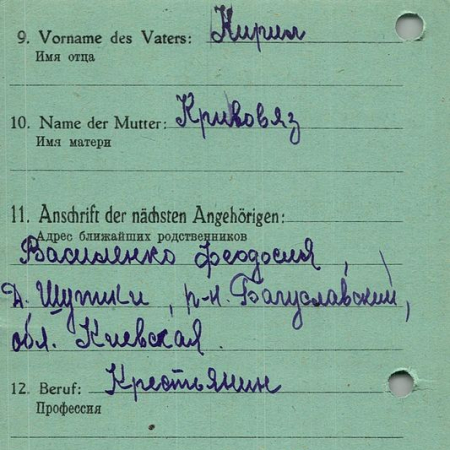 9. Vorname des Vaters: Кирил
Имя отца
10. Name der Mutter: Кривовяз
Имя матери
11. Anschrift der nächsten Angehörigen:
Адрес ближайших родственников
Василенко Феодосия,
д. Шутки, р-н. Багуславский,
обл. Киевская.
12. Beruf: Крестьянин
Профессия